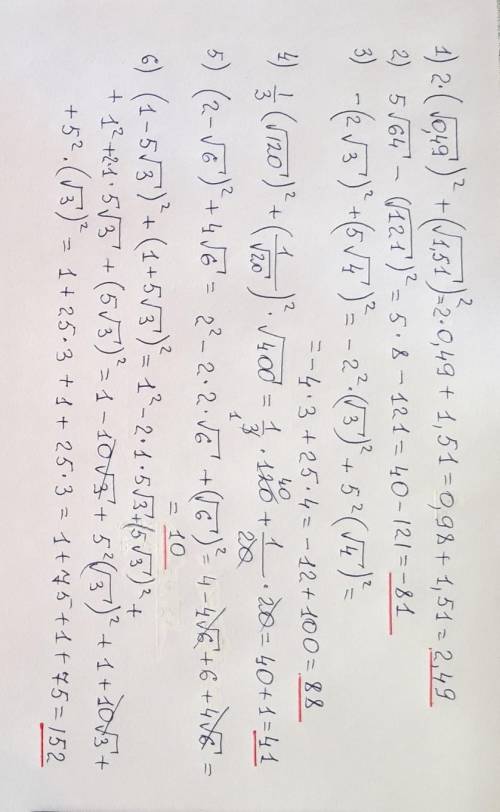 1) 2·(√0,49)² + (√1,51)² = 2·0,49 + 1,51 = 0,98 + 1,51 = 2,49
2) 5√64 − (√121)² = 5·8 − 121 = 40 − 121 = −81
3) −(2√3)² + (5√4)² = −2²·(√3)² + 5²(√4)² =
= −4·3 + 25·4 = −12 + 100 = 88
4) 1/3 (√120)² + (1/√20)² · √400 = 1/3 · 120 + 1/20 · 20 = 40 + 1 = 41
5) (2−√6)² + 4√6 = 2² − 2·2·√6 + (√6)² = 4 − 4√6 + 6 + 4√6 =
= 10
6) (1−5√3)² + (1+5√3)² = 1² − 2·1·5√3 + (5√3)² +
+ 1² + 2·1·5√3 + (5√3)² = 1 − 10√3 + 5²(√3)² + 1 + 10√3 +
+ 5²·(√3)² = 1 + 25·3 + 1 + 25·3 = 1 + 75 + 1 + 75 = 152